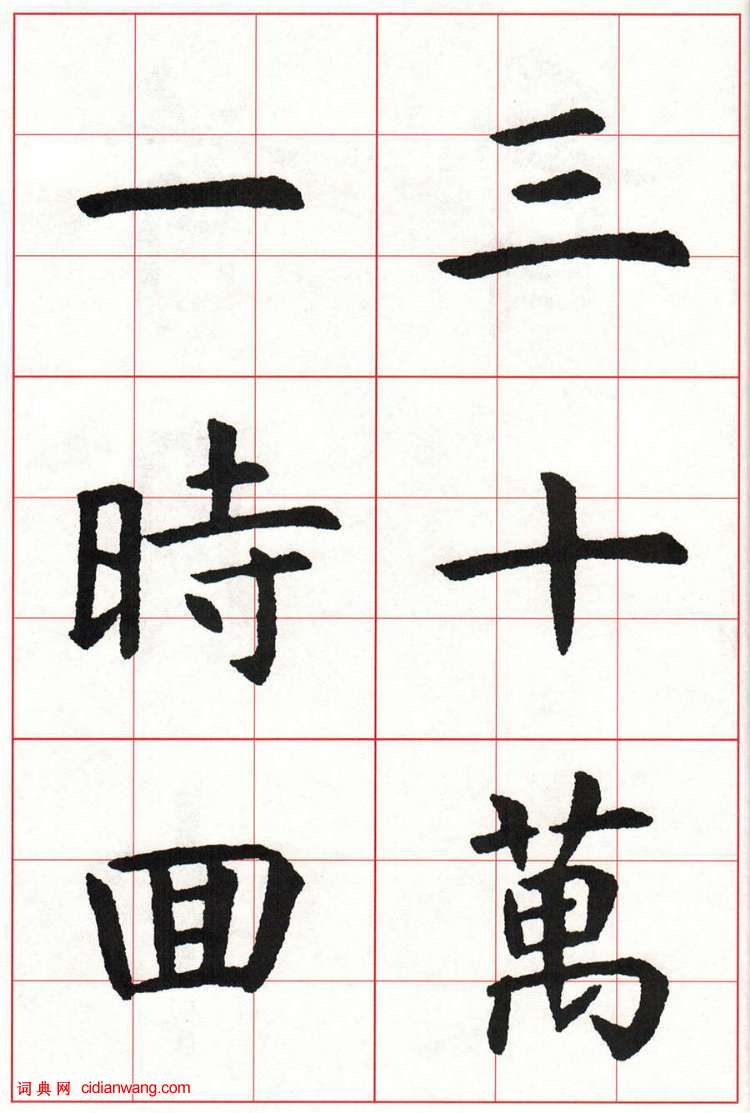 三十萬
一時囬
词典网 cidianwang.com